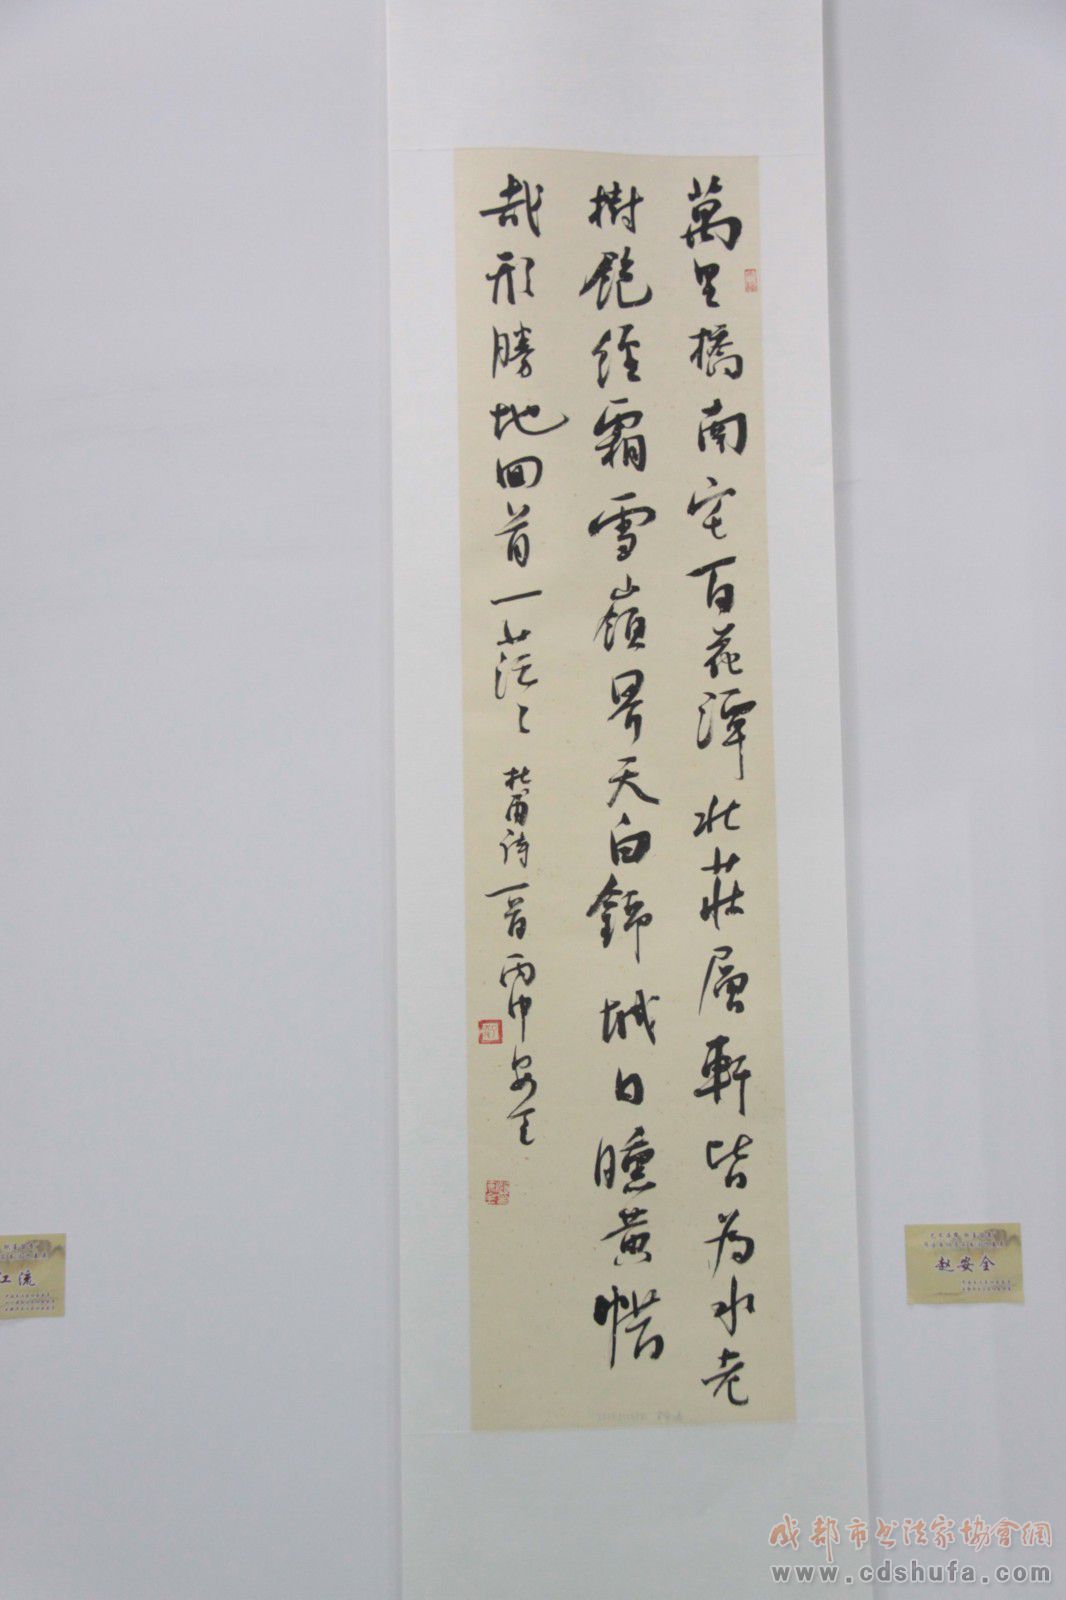 萬里橋南宅百花潭北莊層軒皆為水老
樹飽經霜雪嶺界天白錦城日曛黃惜
哉形勝地回首一茫〻 杜甫诗一首 丙申安全
江流
赵安全
成都市书法家协會網
www.cdshufa.com